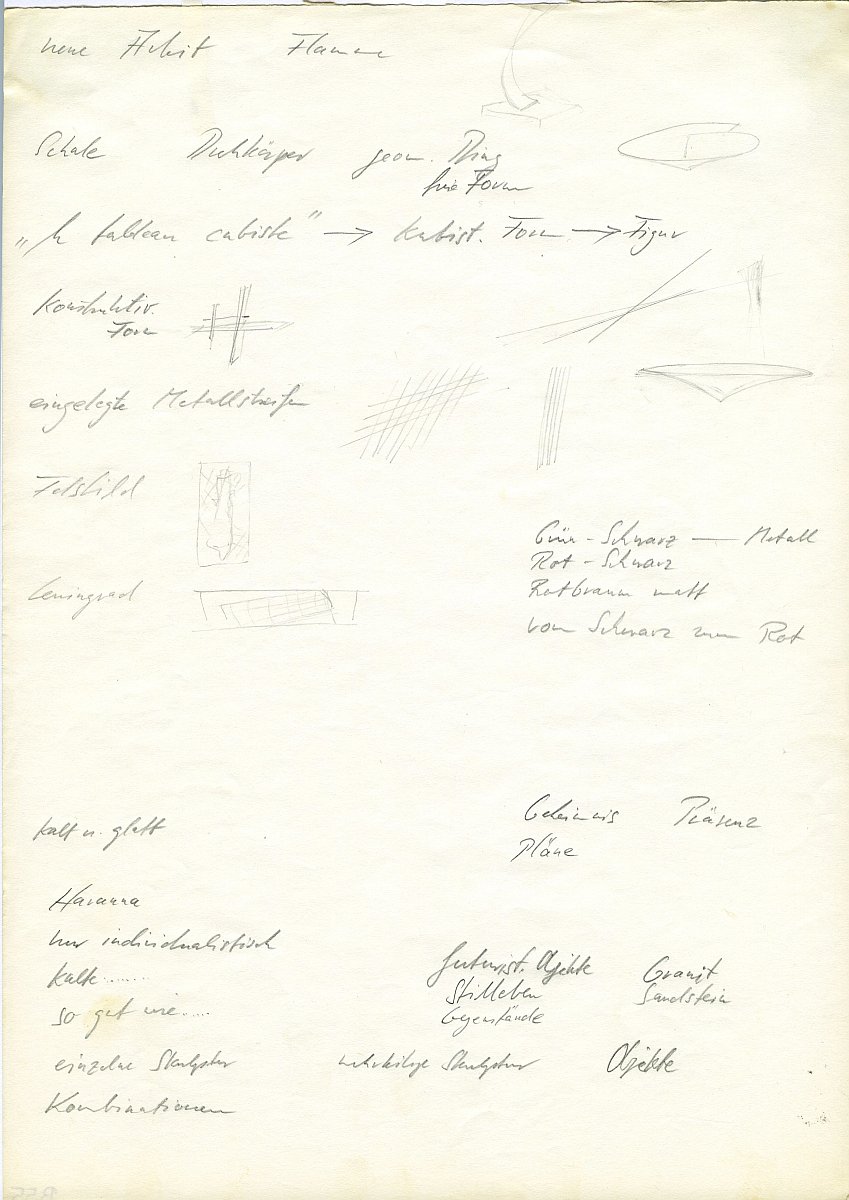 neue Arbeit Flamme
Schale Drehkörper geom. Ring
freie Form
„Un tableau cubiste" → Kubist. Form → Figur
Konstruktiv.
Form
eingelegte Metallstreifen
Felsbild
Grün - Schwarz — Metall
Rot - Schwarz
Leningrad
Rotbraun matt
vom Schwarz zum Rot
Geheimnis Präsenz
kalt u. glatt
Pläne
Havanna
nur individualistisch
Kälte.......
Futurist. Objekte Granit
Stilleben Sandstein
so gut wie.....
Gegenstände
einzelne Skulptur mehrteilige Skulptur Objekte
Kombinationen